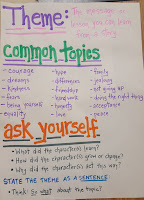 Theme: The message or
lesson you can learn
from a story.
common topics
- courage - hope - family
- dreams - differences - jealousy
- kindness - friendship - not giving up
- fear - hard work - doing the right thing
- being yourself - honesty - acceptance
- equality - love - peace
ask yourself
• What did the character(s) learn?
• How did the character(s) grow or change?
• Why did the character(s) act this way?
STATE THE THEME AS A SENTENCE!
• Think: So what about the topic?